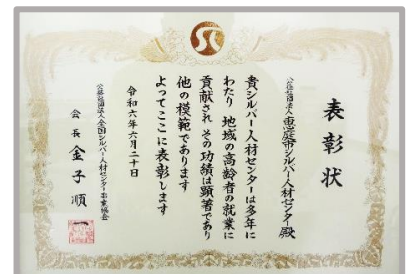 表彰状
公益社団法人恵庭市シルバー人材センター殿
貴シルバー人材センターは多年に
わたり 地域の高齢者の就業に
貢献され その功績は顕著であり
他の模範であります
よってここに表彰します
令和六年六月二十日
公益社団法人全国シルバー人材センター事業協会
会長 金子順一